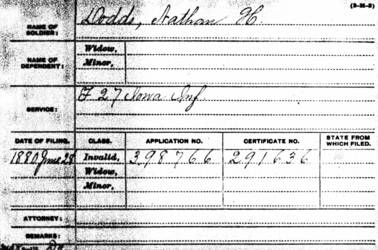 (3-26-0)
NAME OF SOLDIER: Dodds, Nathan H
NAME OF DEPENDENT: Widow,
Minor,
SERVICE: F 27 Iowa Inf
DATE OF FILING. CLASS. APPLICATION NO. CERTIFICATE NO. STATE FROM WHICH FILED.
1880 June 28 Invalid, 398766 291636
Widow,
Minor,
ATTORNEY:
REMARKS: